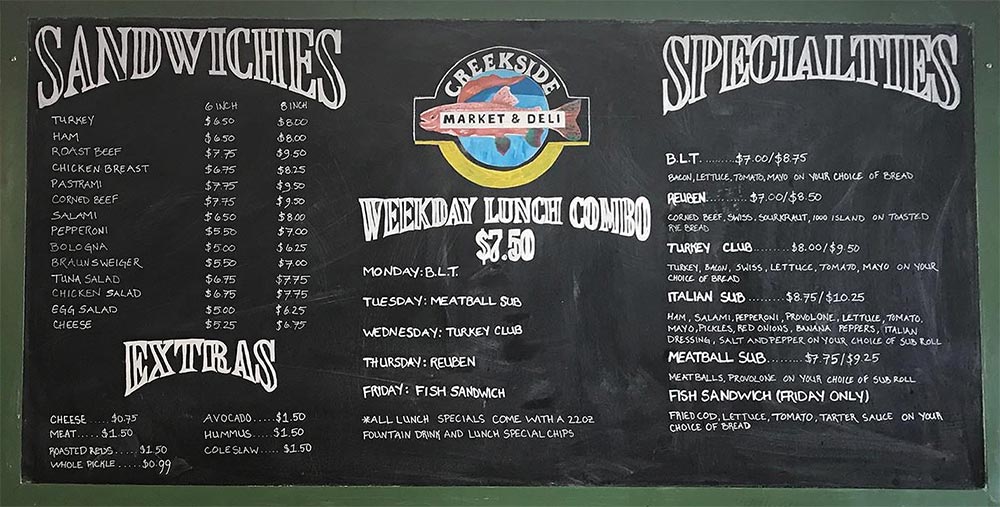 SANDWICHES
6 INCH 8 INCH
TURKEY $6.50 $8.00
HAM $6.50 $8.00
ROAST BEEF $7.75 $9.50
CHICKEN BREAST $6.75 $8.25
PASTRAMI $7.75 $9.50
CORNED BEEF $7.75 $9.50
SALAMI $6.50 $8.00
PEPPERONI $5.50 $7.00
BOLOGNA $5.00 $6.25
BRAUNSWEIGER $5.50 $7.00
TUNA SALAD $6.75 $7.75
CHICKEN SALAD $6.75 $7.75
EGG SALAD $5.00 $6.25
CHEESE $5.25 $6.75
EXTRAS
CHEESE.....$0.75
MEAT.....$1.50
ROASTED REDS.....$1.50
WHOLE PICKLE.....$0.99
AVOCADO.....$1.50
HUMMUS....$1.50
COLESLAW.....$1.50
CREEKSIDE
MARKET & DELI
WEEKDAY LUNCH COMBO
$7.50
MONDAY: B.L.T.
TUESDAY: MEATBALL SUB
WEDNESDAY: TURKEY CLUB
THURSDAY: REUBEN
FRIDAY: FISH SANDWICH
*ALL LUNCH SPECIALS COME WITH A 22OZ
FOUNTAIN DRINK AND LUNCH SPECIAL CHIPS
SPECIALTIES
B.L.T. ........$7.00/$8.75
BACON, LETTUCE, TOMATO, MAYO ON YOUR CHOICE OF BREAD
REUBEN..........$7.00/$8.50
CORNED BEEF, SWISS, SOURKRAUT, 1000 ISLAND ON TOASTED
RYE BREAD
TURKEY CLUB........$8.00/$9.50
TURKEY, BACON, SWISS, LETTUCE, TOMATO, MAYO ON YOUR
CHOICE OF BREAD
ITALIAN SUB.........$8.75/$10.25
HAM, SALAMI, PEPPERONI, PROVOLONE, LETTUCE, TOMATO.
MAYO, PICKLES, RED ONIONS, BANANA PEPPERS, ITALIAN
DRESSING, SALT AND PEPPER ON YOUR CHOICE OF SUB ROLL
MEATBALL SUB.........$7.75/$9.25
MEATBALLS, PROVOLONE ON YOUR CHOICE OF SUB ROLL
FISH SANDWICH (FRIDAY ONLY)
FRIED COD, LETTUCE, TOMATO, TARTER SAUCE ON YOUR
CHOICE OF BREAD